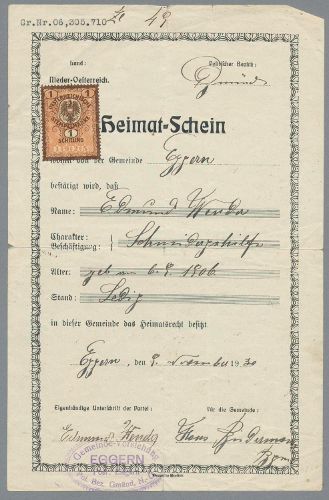 Gr.Nr.06,305,710
49
Land:
Politischer Bezirk:
Nieder-Oesterreich.
Gmünd
1
1
SCHILLING
Heimat-Schein
womit von der Gemeinde Eggern
bestätigt wird, daß
Name: Edmund Wenda
Charakter:
Beschäftigung: Schmidgehilfe
Alter: geb am 6. 9. 1906
Stand: Ledig
in dieser Gemeinde das Heimatsrecht besitzt
Eggern, den 9. November 1930
Eigenhändige Unterschrift der Partei:
für die Gemeinde:
Edmund Wenda
Hans
Gemeinde-Vorstehung
EGGERN
Pol. Bez. Gmünd, N.-Ö.